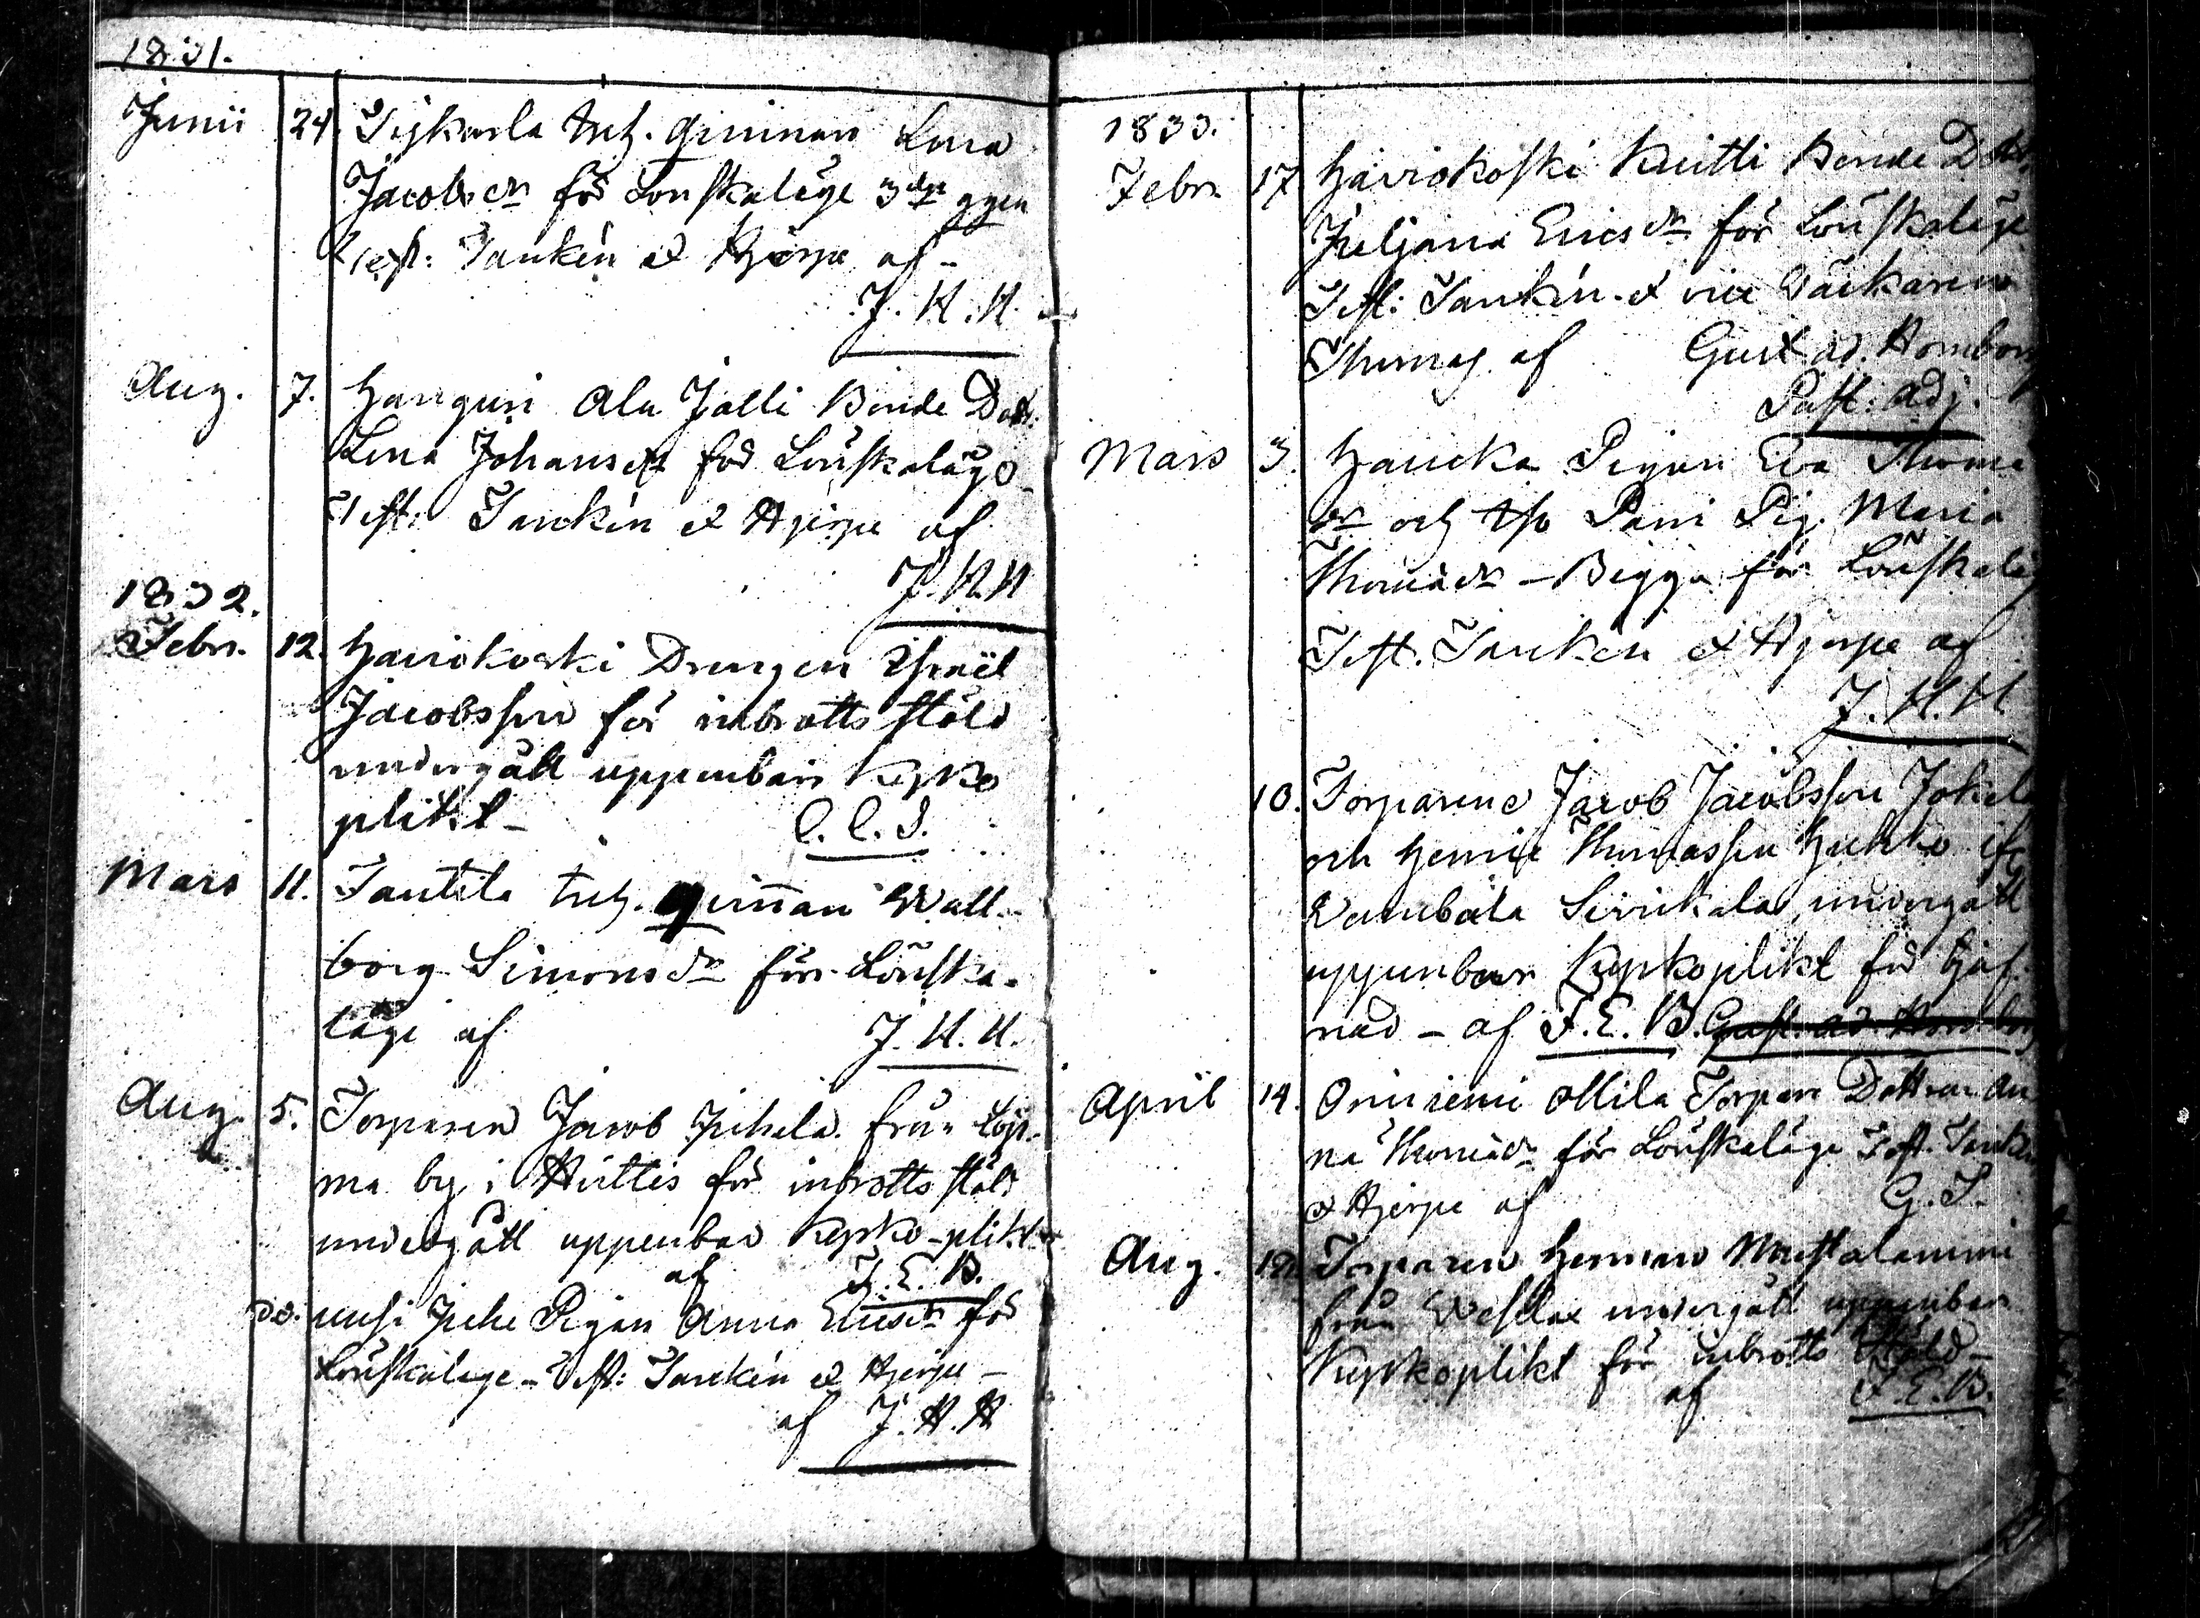 1831.
Junii 24. Sijkarla Inh. qvinnan Lena
Jacobsdr för Lönskaläge 3dje ggen
Test: Tankén et Hjerpe af -
J. H. H.
Aug. 7. Hanguri Ala Jalli Bonde Dott.
Lena Johansdr för Lönskaläge
Test: Tankén et Hjerpe af
J. H. H
1832.
Febr. 12. Hariokoski Drengen Israël
Jacobsson för inbrotts stöld
undergått uppenbar kyrko
plikt - C. C. S.
Mars 11. Tantila Inh. qvinnan Wall-
borg Simonsdr för Lönska-
läge af J. H. H.
Aug. 5. Torparen Jacob Juhela från Loi-
ma by i Huittis för inbrotts stöld
undergått uppenbar kyrko-plikt
af F. E. B.
do. uusi Juhe Pigan Anna Ericsdr för
Lönskaläge - Test: Tankén et Hjerpe -
af J. H. H
1833.
Febr. 17. Hariokoski Knitti Bonde Dott.
Juljana Ericsdr för Lönskaläge
Test: Tankén et vice Väckaren
Thomas af Gust. Ad. Hornborg
Past: Adj.
Mars 3. Haucka Pigan Eva Thoma
dr och Pani Pig. Maria
Thomädr - Begge för Lönskaläg
Test. Tankén et Hjerpe af
J. H. H.
10. Torparene Jacob Jacobsson Johela
och Henric Thomasson Huhko ifr
Sirrikala undergått
uppenbar Kyrkoplikt för tjuf-
nad - af F. E. B. Gust. Ad. Hornborg
April 14. Oriniemi Ollila Torpare Dottren An
na Thomädr för Lönskaläge Test. Tanken
et Hjerpe af G. S.
Aug. 18. Torparen Herman Mustalammi
från Wesilax undergått uppenbar
Kyrkoplikt för inbrotts Stöld -
af F. E. B.